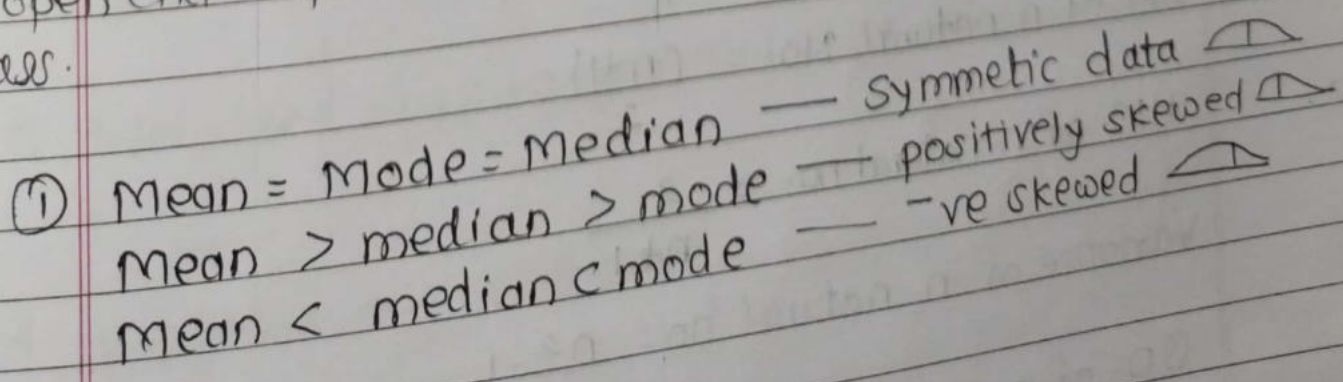 ses.
① Mean = Mode = Median — Symmetic data
Mean > median > mode — positively skewed
Mean < median < mode — -ve skewed